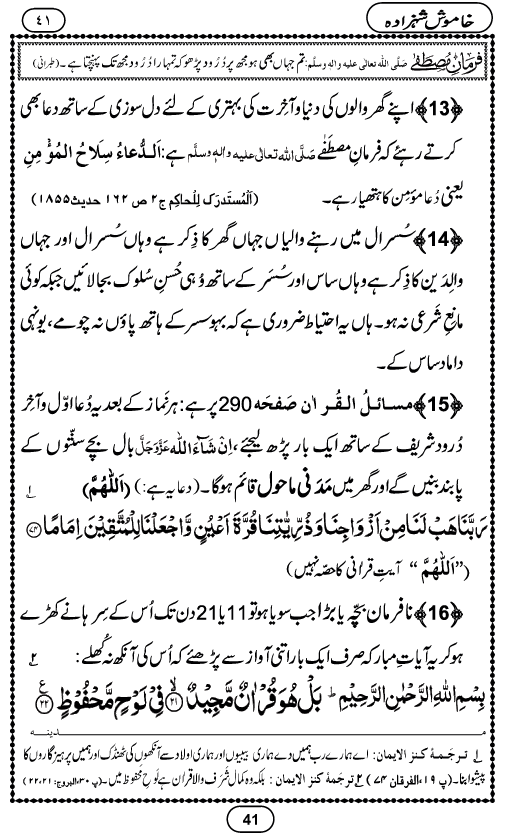 خاموش شہزادہ
٤١
فرمانِ مصطفٰے صَلَّی اللہ تعالٰی علیہ والہٖ وسلَّم: تم جہاں بھی ہو مجھ پر دُرُود پڑھو کہ تمہارا دُرُود مجھ تک پہنچتا ہے۔ (طبرانی)
﴿13﴾ اپنے گھر والوں کی دنیا و آخرت کی بہتری کے لئے دل سوزی کے ساتھ دعا بھی
کرتے رہئے کہ فرمانِ مصطَفٰے صَلَّی اللہ تعالٰی علیہ والہٖ وسلَّم ہے: اَلدُّعاءُ سِلَاحُ الْمُؤْمِنِ
یعنی دُعا مؤمِن کا ہتھیار ہے۔ (اَلْمُستَدرَك لِلْحاكِم ج۲ ص ۱۶۲ حدیث۱۸۵۵)
﴿14﴾ سُسرال میں رہنے والیاں جہاں گھر کا ذِکر ہے وہاں سُسرال اور جہاں
والِدَین کا ذِکر ہے وہاں ساس اور سُسَر کے ساتھ وُہی حُسنِ سُلوک بجا لائیں جبکہ کوئی
مانِعِ شَرعی نہ ہو۔ ہاں یہ احتیاط ضروری ہے کہ بہو سسر کے ہاتھ پاؤں نہ چومے، یونہی
داماد ساس کے۔
﴿15﴾ مسائلُ القُراٰن صَفْحَہ 290 پر ہے: ہر نَماز کے بعد یہ دُعا اوّل و آخِر
دُرود شریف کے ساتھ ایک بار پڑھ لیجئے، اِنْ شَآءَ اللہ عَزَّوَجَلَّ بال بچّے سنّتوں کے
پابند بنیں گے اور گھر میں مَدَنی ماحول قائم ہوگا۔ (دعا یہ ہے:) (اَللّٰهُمَّ) ١
رَبَّنَا هَبْ لَنَا مِنْ اَزْوَاجِنَا وَذُرِّيّٰتِنَا قُرَّةَ اَعْيُنٍ وَّاجْعَلْنَا لِلْمُتَّقِيْنَ اِمَامًا ﴿٧٤﴾
(”اَللّٰهُمَّ“ آیتِ قراٰنی کا حصّہ نہیں)
﴿16﴾ نافرمان بچّہ یا بڑا جب سویا ہو تو 11 یا 21 دن تک اُس کے سِرہانے کھڑے
ہو کر یہ آیاتِ مبارَکہ صِرف ایک بار اتنی آواز سے پڑھئے کہ اُس کی آنکھ نہ کُھلے: ٢
بِسْمِ اللهِ الرَّحْمٰنِ الرَّحِيْمِ ط بَلْ هُوَ قُرْاٰنٌ مَّجِيْدٌ ﴿٢١﴾ فِيْ لَوْحٍ مَّحْفُوْظٍ ﴿٢٢﴾
مدینہ
١ ترجَمۂ کنز الایمان: اے ہمارے رب ہمیں دے ہماری بیبیوں اور ہماری اولاد سے آنکھوں کی ٹھنڈک اور ہمیں پرہیزگاروں کا
پیشوا بنا۔ (پ ۱۹، الفرقان ۷۴) ٢ ترجَمۂ کنز الایمان: بلکہ وہ کمال شَرَف والا قراٰن ہے لَوحِ محفوظ میں۔ (پ ۳۰، البروج: ۲۲،۲۱)
41